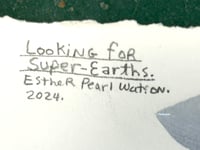 Looking for
Super-Earths.
Esther Pearl Watson.
2024.